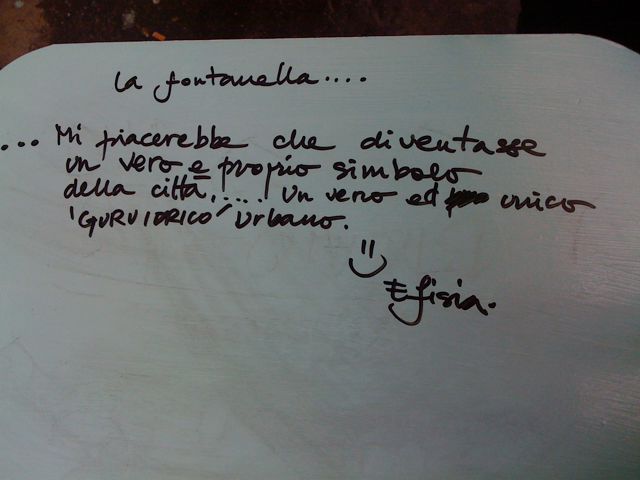 la fontanella....
... Mi piacerebbe che diventasse
un vero e proprio simbolo
della città,.... un vero ed unico
'GURUIDRICO' urbano.
Efisia.